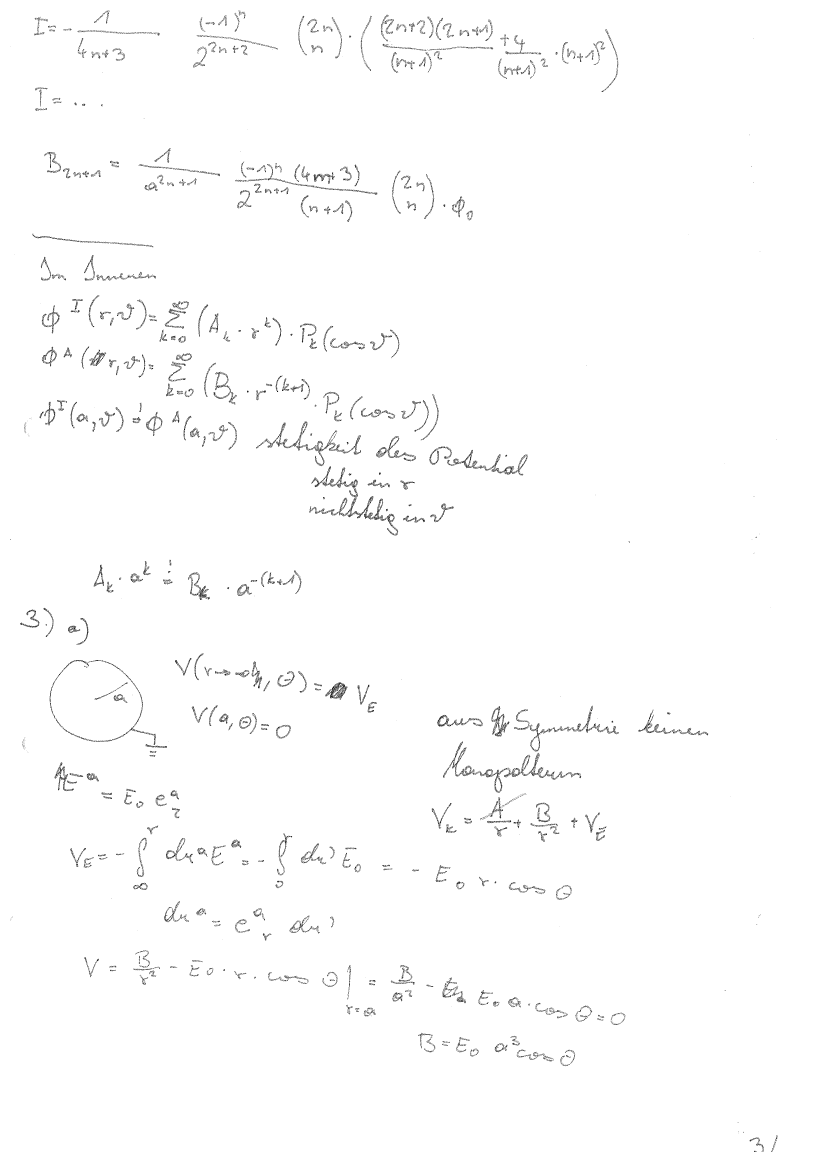 I = - 1/(4n+3) (-1)^n/2^(2n+2) (2n n) · ( (2n+2)(2n+1)/(n+1)^2 + 4/(n+1)^2 · (n+1)^2 )
I = ...
B_(2n+1) = 1/a^(2n+1) (-1)^n (4n+3)/(2^(2n+1) (n+1)) (2n n) · ϕ_0
Im Inneren
ϕ^I (r,ϑ) = ∑_(k=0)^∞ (A_k · r^k) · P_k (cos ϑ)
ϕ^A (r,ϑ) = ∑_(k=0)^∞ (B_k · r^(-(k+1)) · P_k (cos ϑ))
ϕ^I (a,ϑ) =! ϕ^A (a,ϑ) stetigkeit des Potential
stetig in r
nichtstetig in ϑ
A_k · a^k =! B_k · a^(-(k+1))
3.) a)
a
V(r→∞, Θ) = V_E
V(a,Θ) = 0
aus Symmetrie keinen
Monopolterm
E^a = E_0 e^a_z
V_k = A/r + B/r^2 + V_E
V_E = - ∫_∞^r dr^a E^a = - ∫_0^r dr' E_0 = - E_0 r · cos Θ
dr^a = e^a_r dr'
V = B/r^2 - E_0 · r · cos Θ |_(r=a) = B/a^2 - E_0 a · cos Θ = 0
B = E_0 a^3 cos Θ
3/